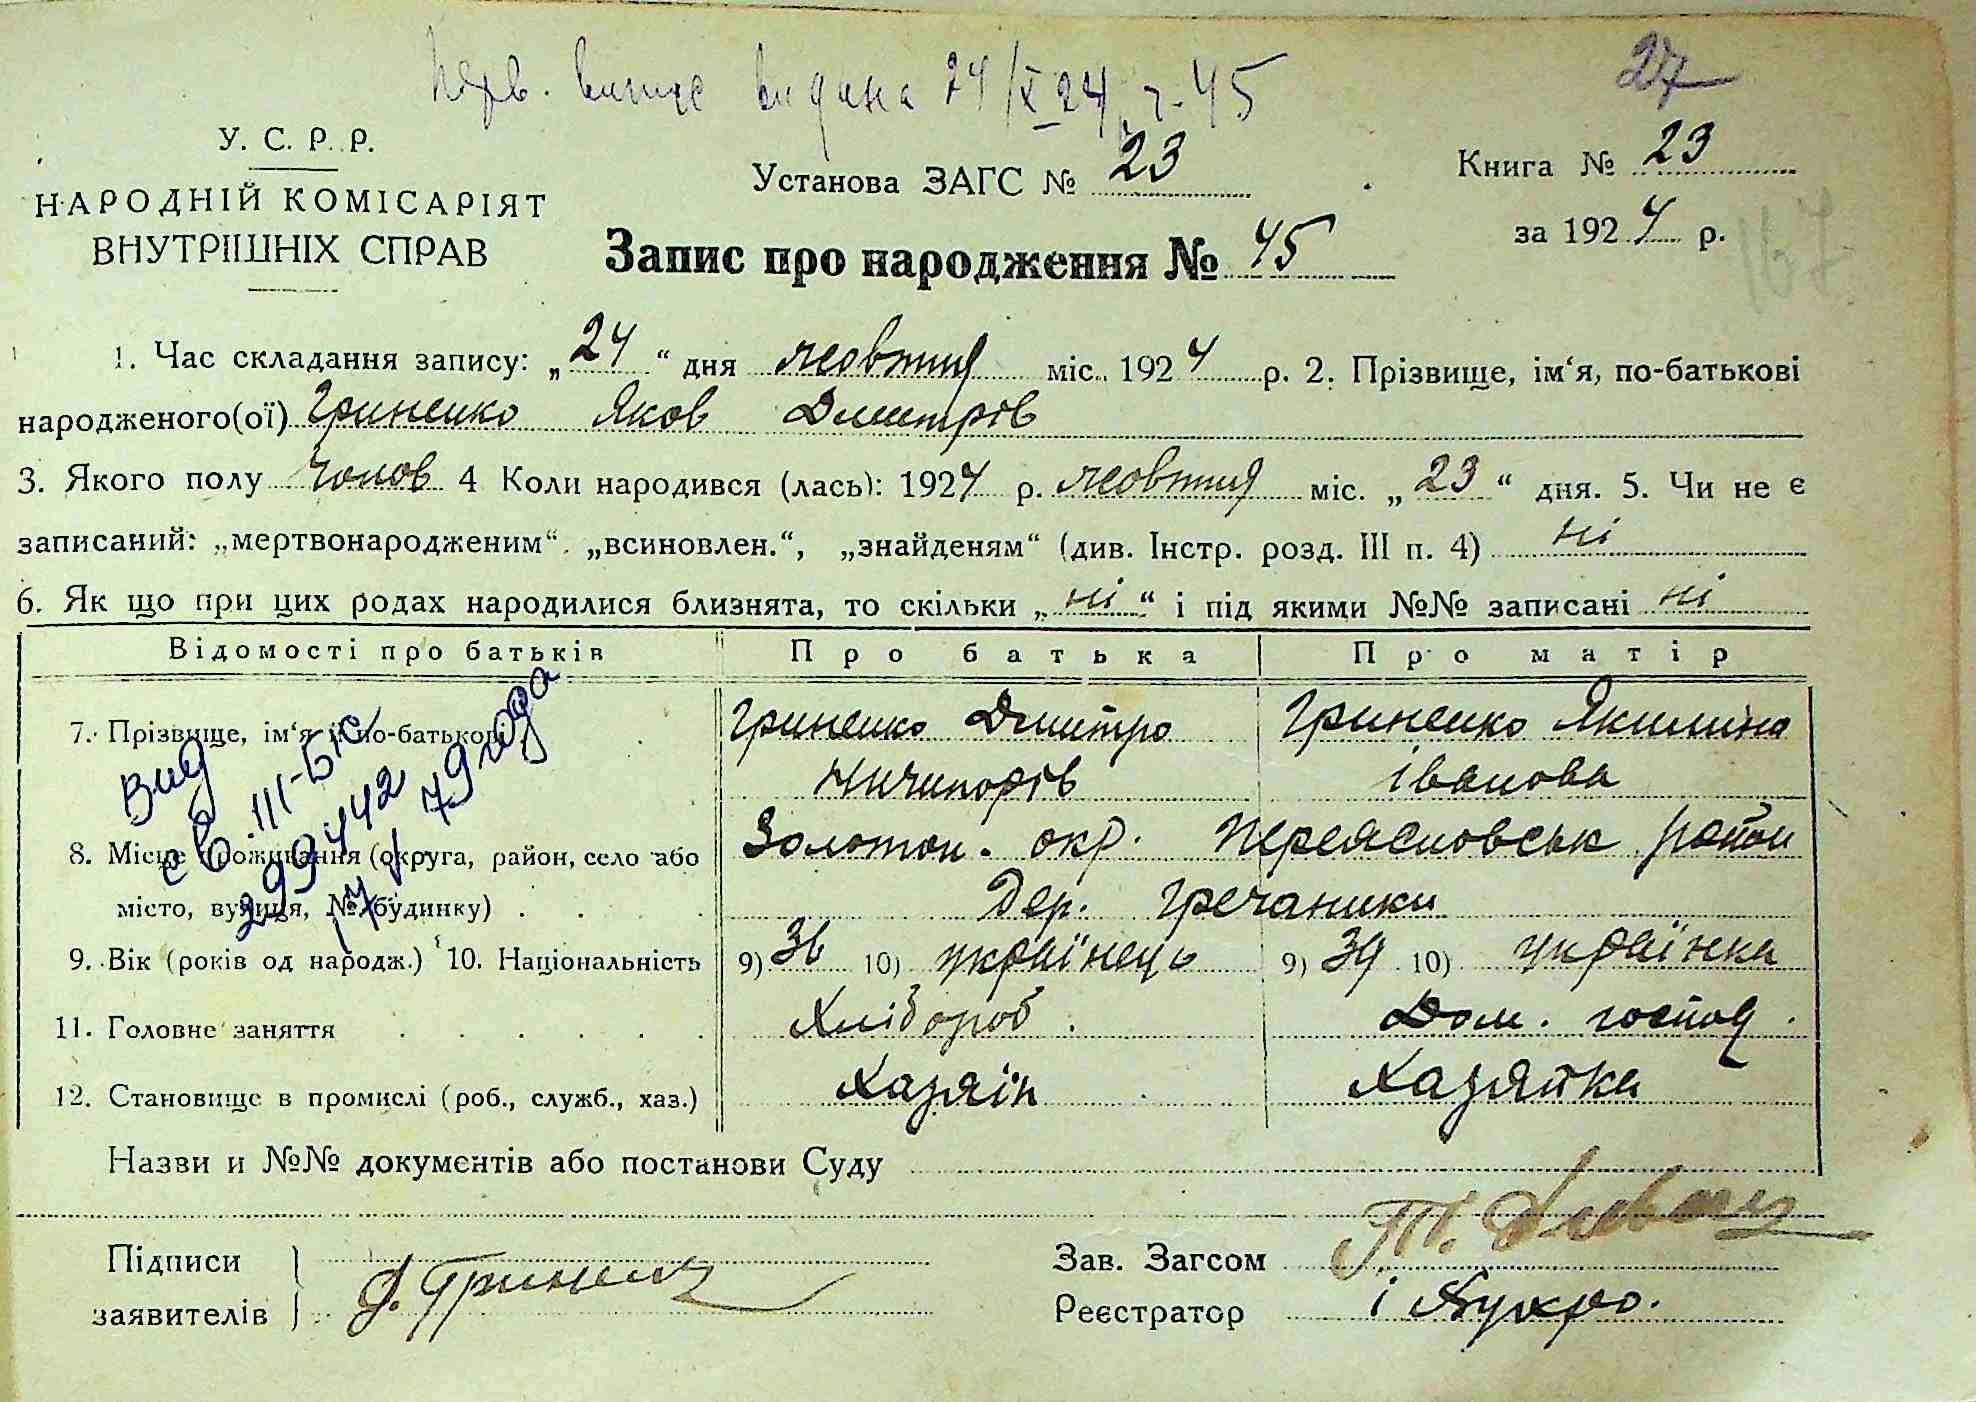 Перв. випис видана 24/X 24 ч. 45
27
У. С. Р. Р.
НАРОДНІЙ КОМІСАРІЯТ
ВНУТРІШНІХ СПРАВ
Установа ЗАГС № 23
Книга № 23
за 1924 р.
167
Запис про народження № 45
1. Час складання запису: „24“ дня жовтня міс. 1924 р. 2. Прізвище, ім‘я, по-батькові
народженого(ої) Гриненко Яков Дмитрів
3. Якого полу чолов 4 Коли народився (лась): 1924 р. жовтня міс. „23“ дня. 5. Чи не є
записаний: „мертвонародженим“. „всиновлен.“, „знайденям“ (див. Інстр. розд. III п. 4) ні
6. Як що при цих родах народилися близнята, то скільки „ні“ і під якими №№ записані ні
Відомості про батьків Про батька Про матір
7. Прізвище, ім‘я й по-батькові Гриненко Дмитро Гриненко Якилина
Ничипорів Іванова
8. Місце проживання (округа, район, село або Золотон. окр. Переясловськ район
місто, вулиця, № будинку) . . . . Дер. Гречаники
9. Вік (років од народж.) 10. Національність 9) 36 10) українець 9) 39 10) українка
11. Головне заняття . . . . . . Хлібороб. Дом. господ.
12. Становище в промислі (роб., служб., хаз.) Хазяїн Хазяйка
Вид
св. III-БК
299442
79 года
Назви и №№ документів або постанови Суду
Підписи
заявителів
Д. Гриненко
Зав. Загсом
Реєстратор